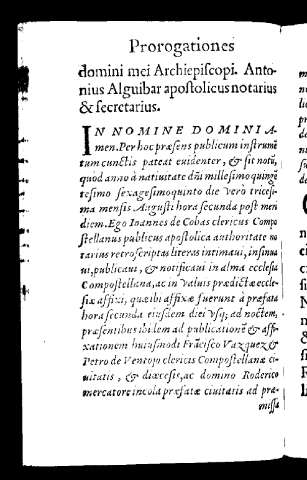 Prorogationes
domini mei Archiepiscopi. Anto-
nius Alguibar apostolicus notarius
& secretarius.
IN NOMINE DOMINI A-
men. Per hoc præsens publicum instrumē
tum cunctis pateat euidenter, & sit notū,
quòd anno à natiuitate dñi millesimoquingē
tesimo sexagesimoquinto die verò tricesi-
ma mensis Augusti hora secunda post meri
diem. Ego Ioannes de Cobas clericus Compo
stellanus publicus apostolica authoritate no
tarius retroscriptas literas intimaui, insinua
ui, publicaui, & notificaui in alma ecclesia
Compostellana, ac in valuis prædictæ eccle-
siæ affixi, quæibi affixæ fuerunt à præfata
hora secunda eiusdem diei vsq; ad noctem,
præsentibus ibidem ad publicationē & affi-
xationem huiusmodi Frācisco Vazquez &
Petro de Ventojo clericis Compostellanæ ci-
uitatis, & diœcesis, ac domino Roderico
mercatore incola præfatæ ciuitatis ad præ-
missa